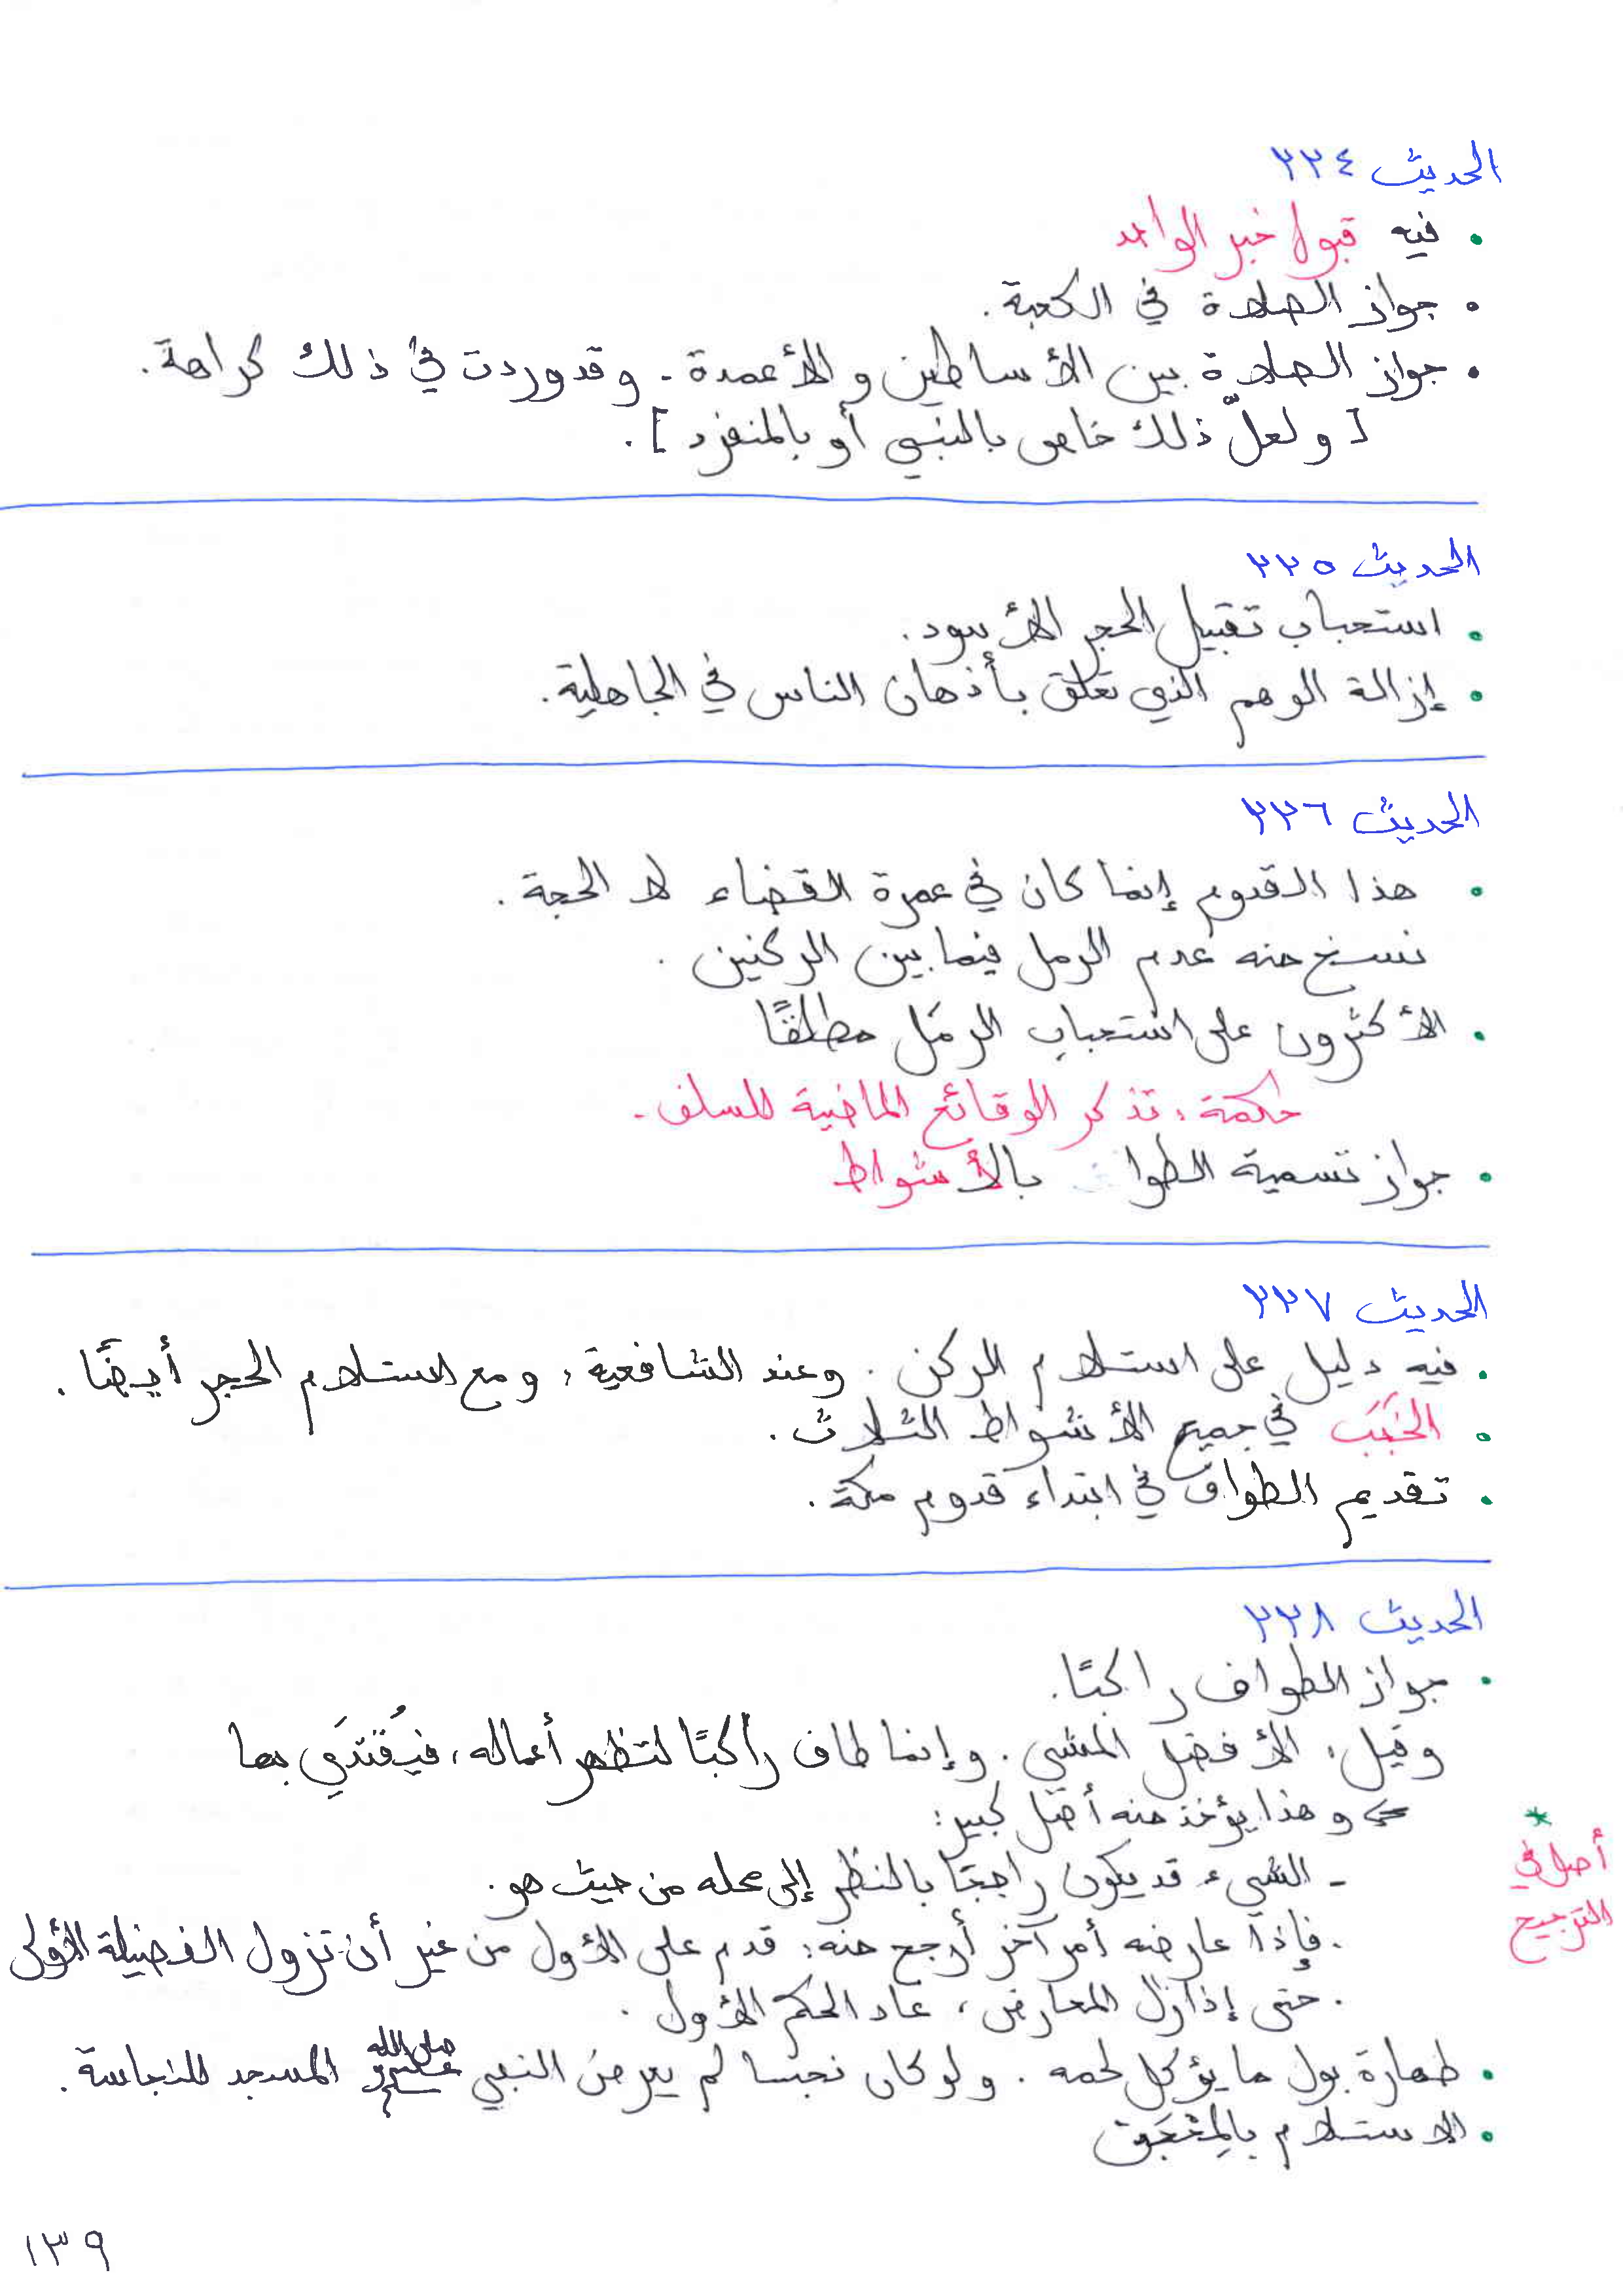 الحديث ٢٢٤
• فيه قبول خبر الواحد
• جواز الصلاة في الكعبة.
• جواز الصلاة بين الأساطين والأعمدة - وقد وردت في ذلك كراهة.
[ولعلّ ذلك خاص بالنبي أو بالمنفرد].
الحديث ٢٢٥
• استحباب تقبيل الحجر الأسود.
• إزالة الوهم الذي تعلق بأذهان الناس في الجاهلية.
الحديث ٢٢٦
• هذا القدوم إنما كان في عمرة القضاء لا الحجة.
نسخ منه عدم الرمل فيما بين الركنين.
• الأكثرون على استحباب الرمَل مطلقًا
حكمة: تذكر الوقائع الماضية للسلف -
• جواز تسمية الطواف بالأشواط
الحديث ٢٢٧
• فيه دليل على استلام الركن. وعند الشافعية: ومع استلام الحجر أيضًا.
• الخَبَب في جميع الأشواط الثلاث.
• تقديم الطواف في ابتداء قدوم مكة.
الحديث ٢٢٨
• جواز الطواف راكبًا.
وقيل: الأفضل المشي. وإنما طاف راكبًا لتظهر أعماله، فيُقتدَي بها
⇐ وهذا يؤخذ منه أصل كبير:
* أصل في الترجيح
- الشيء قد يكون راجحًا بالنظر إلى محله من حيث هو.
. فإذا عارضه أمر آخر أرجح منه: قدم على الأول من غير أن تزول الفضيلة الأولى
. حتى إذا زال المعارض، عاد الحكم الأول.
• طهارة بول ما يؤكل لحمه. ولو كان نجسا لم يعرض النبي صلى الله عليه وسلم المسجد للنجاسة.
• الاستلام بالمِحْجَن
١٣٩